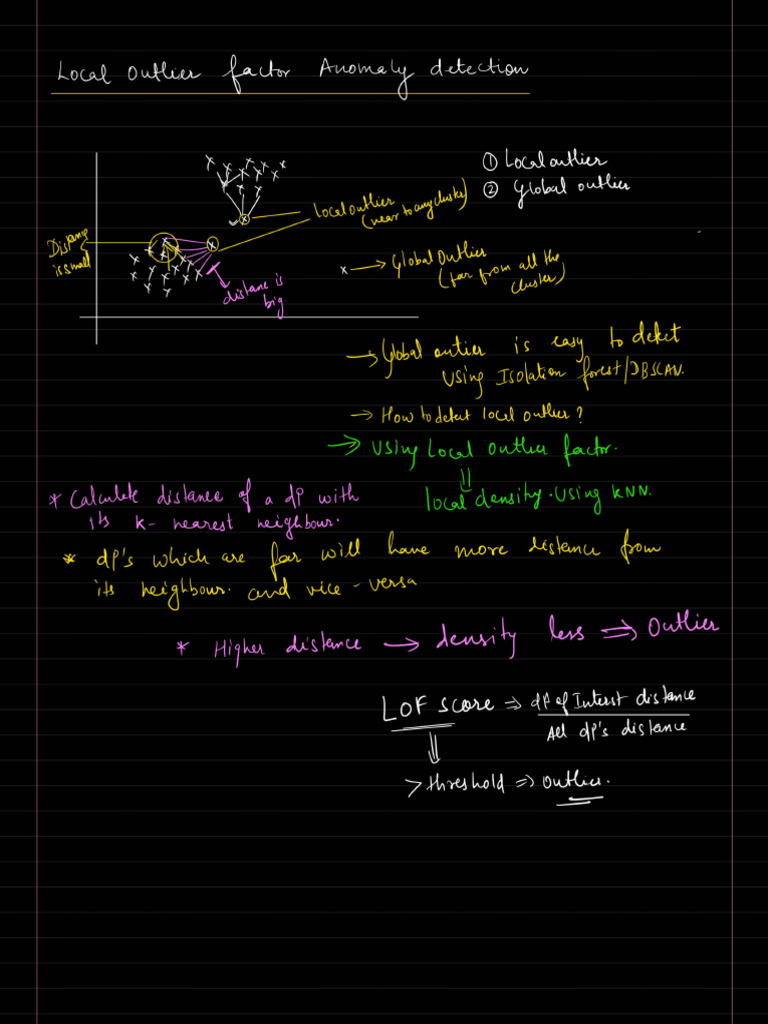 Local outlier factor Anomaly detection
① Local outlier
② Global outlier
Local outlier
(near to any cluster)
Distance
is small
Global Outlier
(far from all the
cluster)
distane is
big
→ Global outier is easy to detect
Using Isolation forest/DBSCAN.
→ How to detect local outlier?
→ Using Local Outlier factor.
local density. Using KNN.
* Calculate distance of a dp with
its k-nearest neighbour.
* dp's which are far will have more distance from
its neighbour. and vice-versa
* Higher distance → density less ⇒ Outlier
LOF score ⇒ dp of Interst distance
All dp's distance
> threshold ⇒ outlier.